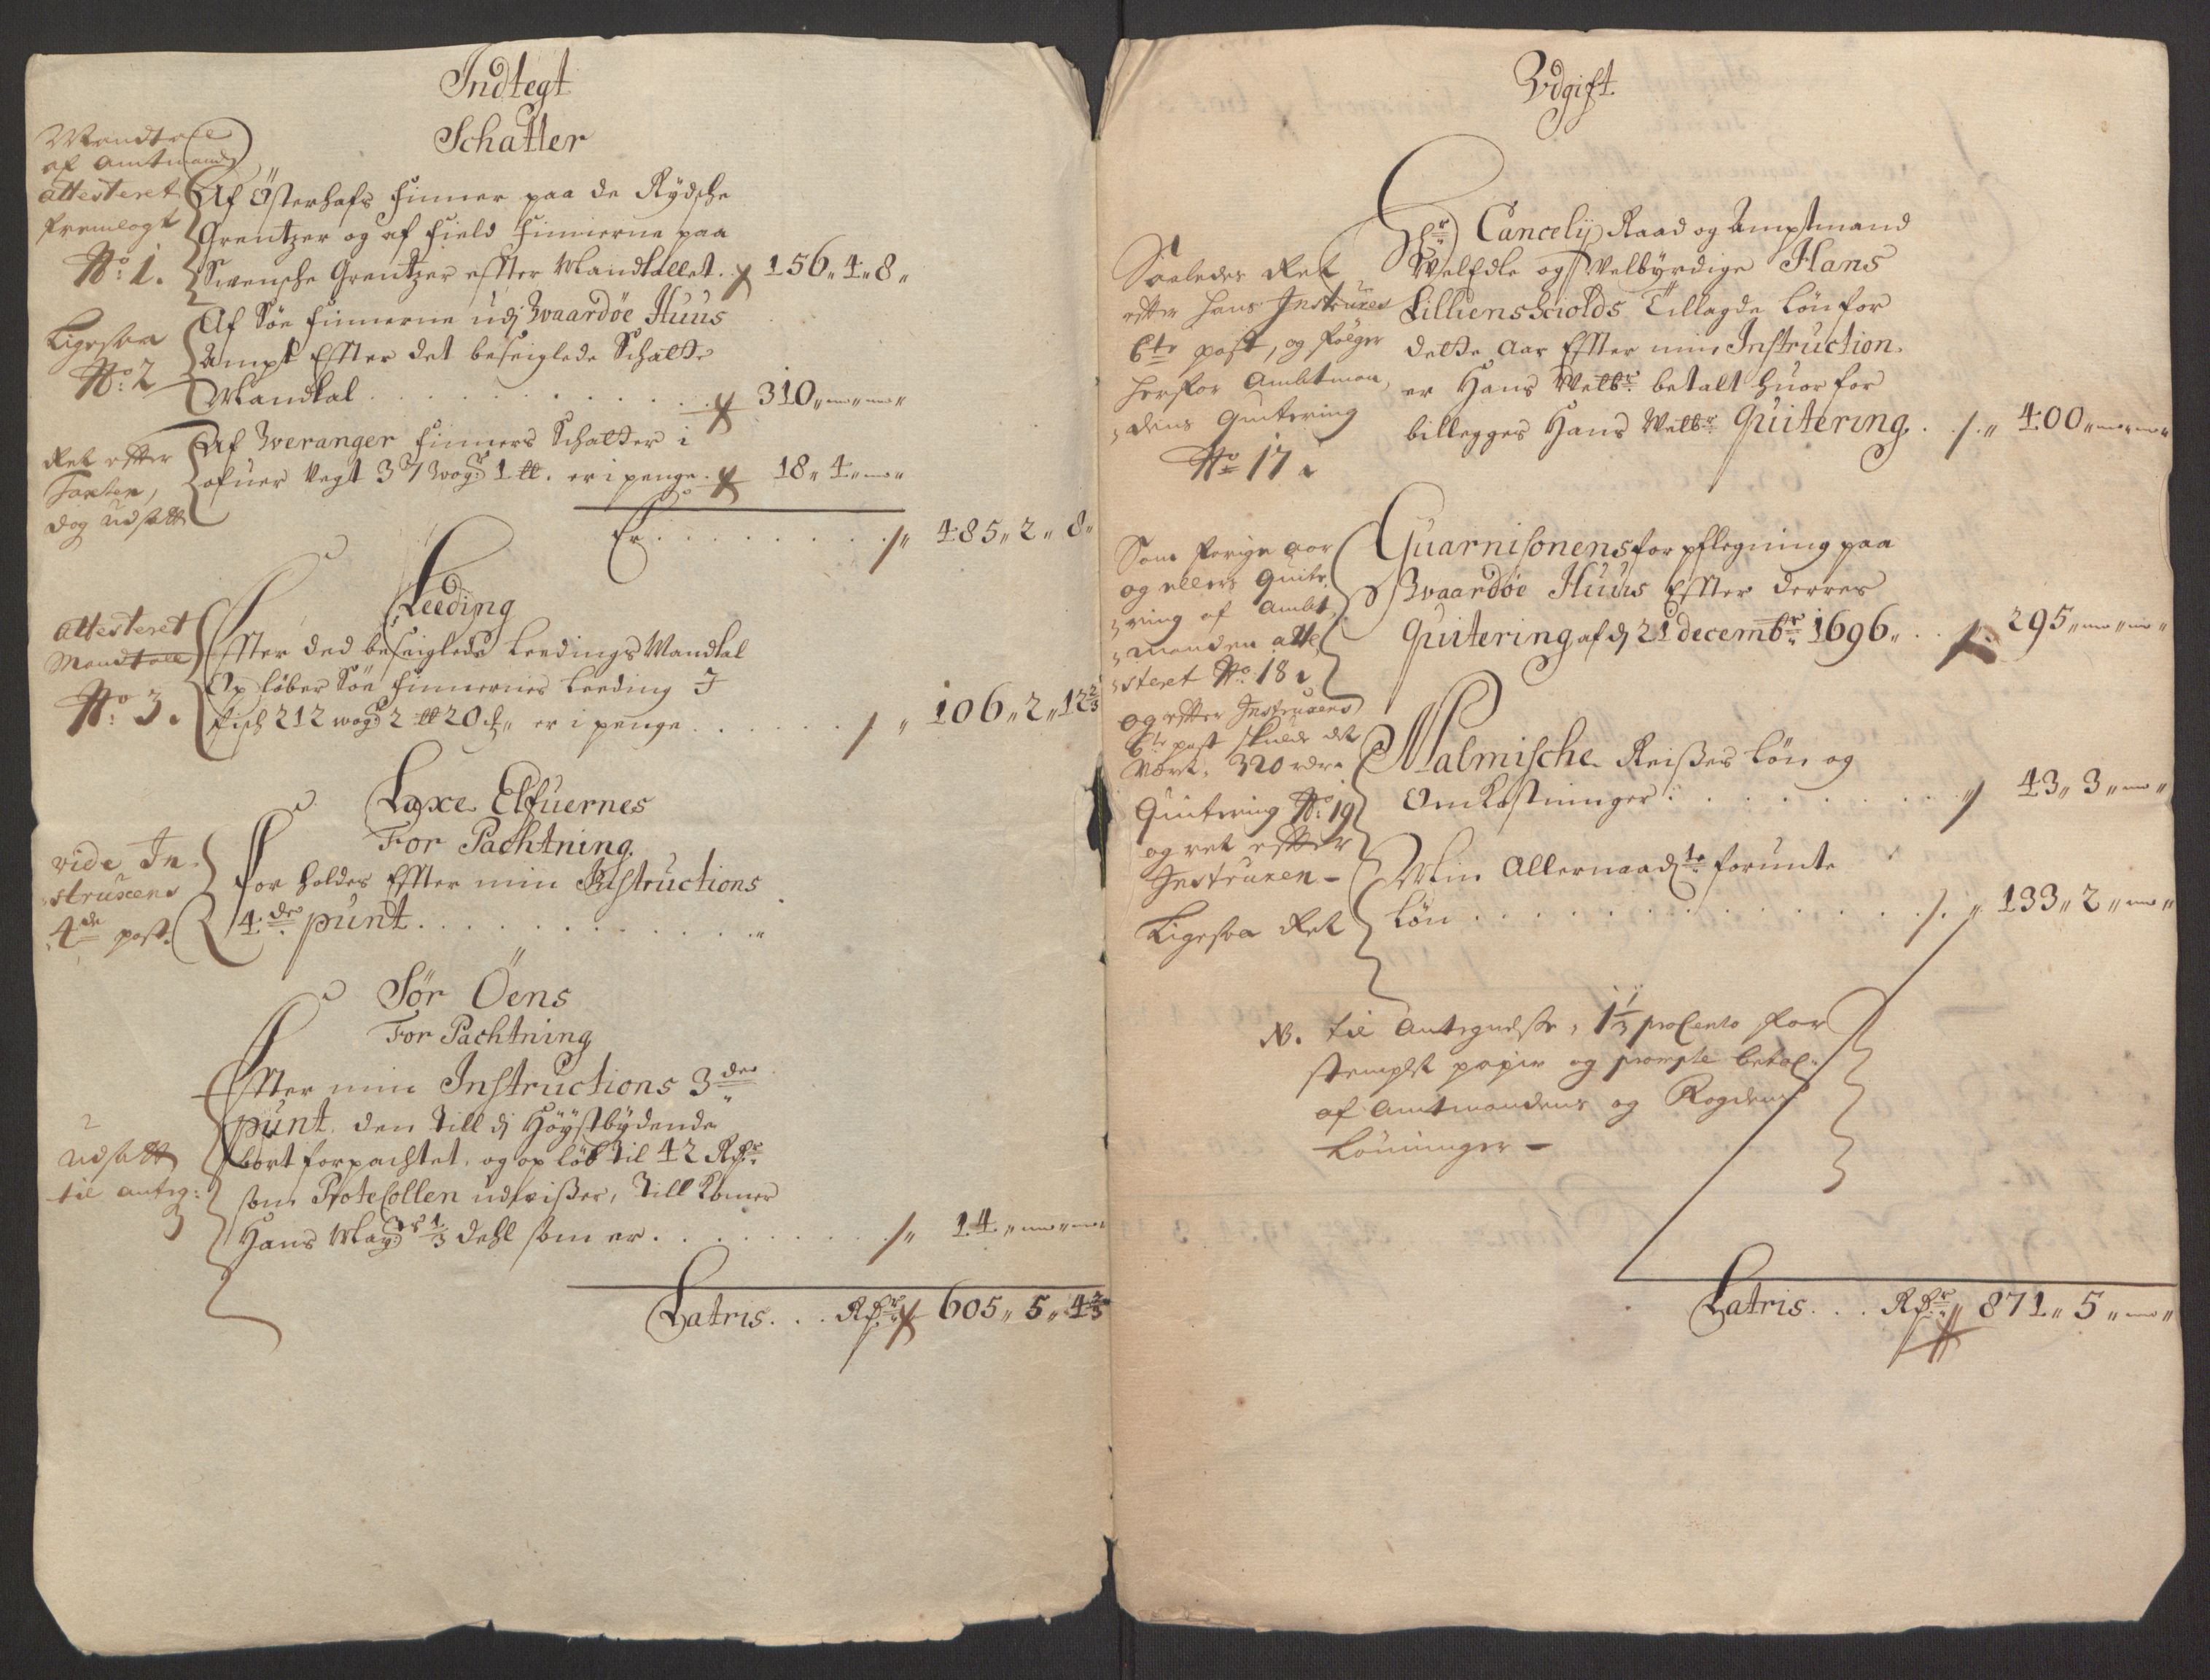 Indtegt
Schatter
Mandtall
af Amtmand
attesteret
fremlagt
No: 1.
Af Østerhafs Finner paa de Rydsche
Grentzer og af Field Finnerne paa
Swensche Grentzer effter Mandtallet. 156 „ 4 „ 8 „
Ligesaa
No: 2
Af Söe Finnerne udj Wardöe Huus
Ampt Effter det beseiglede Schatte
Mandtal . . . . . 310 „ „
Ret efter
Taxten,
dog udsatt
Af Weranger Finners Schatter i
ofuer Vegt 37 wog: 1 lb. er i penge. 18 „ 4 „
Er . . . . . 485 „ 2 „ 8 „
Leeding
Attesteret
Mandtall
No: 3.
Effter ded beseiglede Leedings Mandtal
Op løber Söe Finnernes Leeding J
Fisch 212 wog 2 lb 20 „ er i penge . . . . . 106 „ 2 „ 12 2/3
Laxe Elfuernes
For Pachtning
vide In
struxens
4de post.
For holdes Effter min Instructions
4.de punt . . . . .
Sör Öens
For Pachtning
Udsatt
til anteg:
Effter min Instructions 3de
punt. den Till dj Höystbydende
bort forpachtet, og op löb til 42 Rdr
som Protecollen udviser, Till komer
Hans Mayts 1/3 dehl som er . . . . . 14 „ „
Latris . . . Rdr 605 „ 5 „ 4 2/3
Vdgift
Saaledes Ret
efter hans Instruxes
6te post, og følger
herfor Ambtman,
dens Quitering
No 17
Hr Cancelij Raad og Ampstmand
Welædle og Welbyrdige Hans
Lilliensckiolds Tillagde Lön for
dette Aar Effter min Instruction
er Hans Welbr betalt huor for
billegges Hans Welbr Quitering. . 400 „ „
Som forige aar
og ellers Quite,
ring af Ambt,
manden atte,
steret No: 18
og efter Instruxens
6te post skulde det
været 320 rdr
Guarnisonens forpflegning paa
Waardöe Huus Effter derres
Quitering af dj 21 decembr 1696 „ . . 295 „ „
Quitering No: 19
og ret efter
Instruxen –
Malmische Reises Lön og
Omkostninger . . . . . 43 „ 3 „
Ligesaa Ret
Min Allernaadte forunte
Lön . . . . . 133 „ 2 „
NB. til Antegnelse, 1 1/3 proCento for
stemplet papir og prompte betal:
af Amtmandens og Fogdens
Lönninger –
Latris . . . Rdr 871 „ 5 „